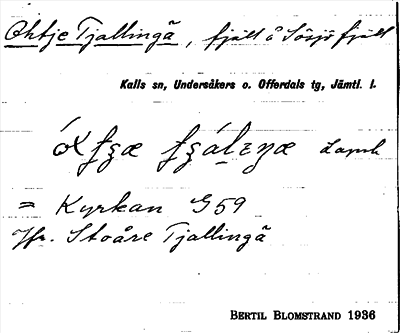 Ohtje Tjallingå, fjäll å Sösjö fjäll
Kalls sn, Undersåkers o. Offerdals tg, Jämtl. l.
Lapsk
= Kyrkan G59
Jfr. Stoåre Tjallingå
BERTIL BLOMSTRAND 1936